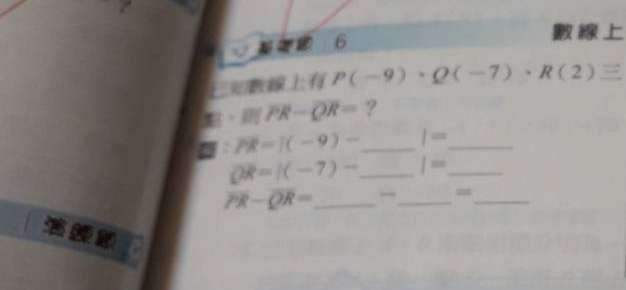 6
數線上
已知數線上有P(-9)、Q(-7)、R(2)三
點，則PR-QR=?
PR=|(-9)-____|=____
QR=|(-7)-____|=____
PR-QR=____-____=____